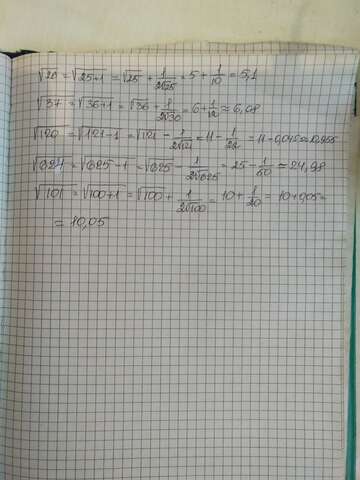 √26 = √25+1 = √25 + 1/2√25 = 5 + 1/10 = 5,1
√37 = √36+1 = √36 + 1/2√30 = 6 + 1/12 ≈ 6,08
√120 = √121-1 = √121 - 1/2√121 = 11 - 1/22 = 11 - 0,045 ≈ 10,955
√624 = √625-1 = √625 - 1/2√625 = 25 - 1/50 ≈ 24,98
√101 = √100+1 = √100 + 1/2√100 = 10 + 1/20 = 10+0,05=
= 10,05